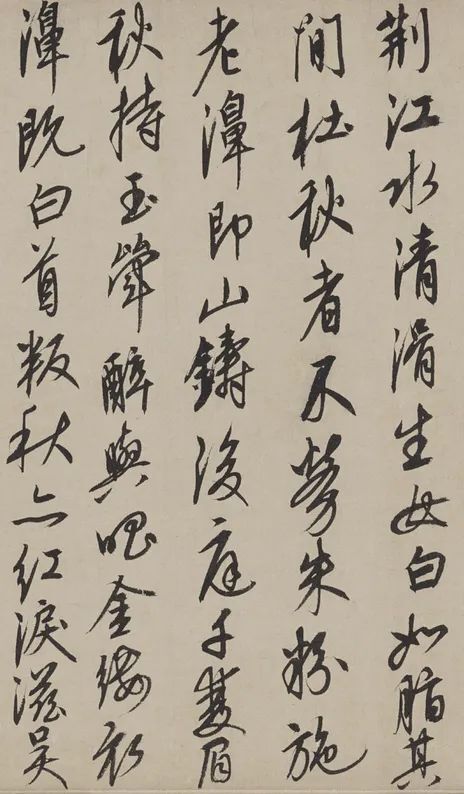 荆江水清滑生女白如脂其
间杜秋者不劳朱粉施
老濞即山鑄後庭千雙眉
秋持玉斝醉與唱金縷衣
濞既白首叛秋亦紅淚滋吴